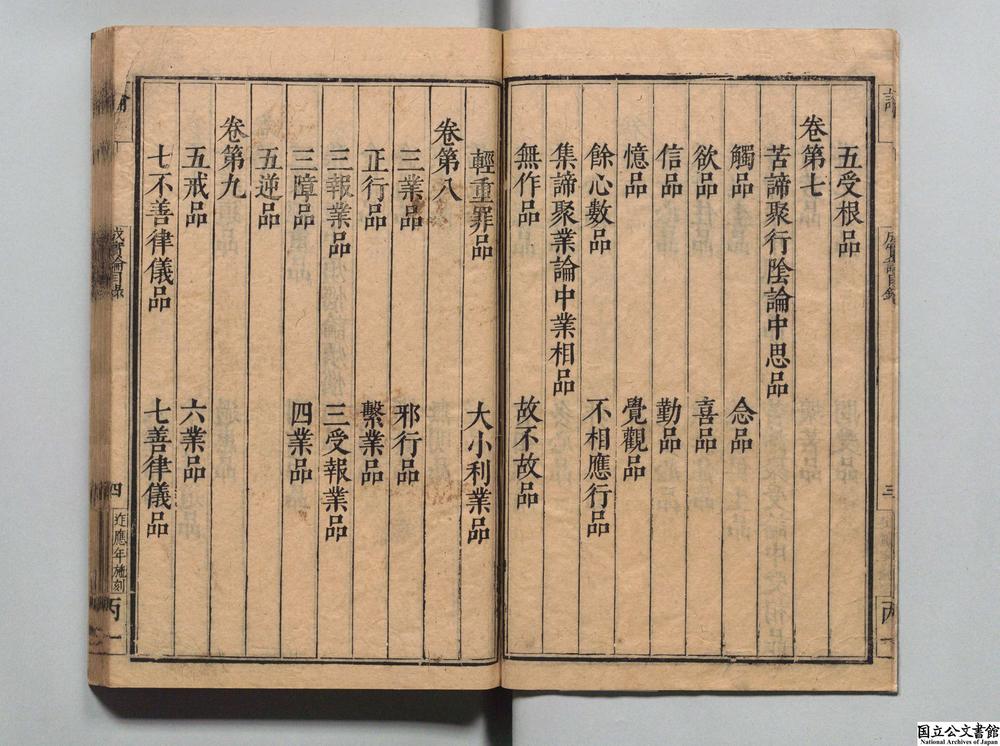 五受根品
卷第七
苦諦聚行陰論中思品
觸品 念品
欲品 喜品
信品 勤品
憶品 覺觀品
餘心數品 不相應行品
集諦聚業論中業相品
無作品 故不故品
輕重罪品 大小利業品
卷第八
三業品 邪行品
正行品 繫業品
三報業品 三受報業品
三障品 四業品
五逆品
卷第九
五戒品 六業品
七不善律儀品 七善律儀品
論
三
丙一
成實論目录
四
應年施刻
丙一
国立公文書館
National Archives of Japan